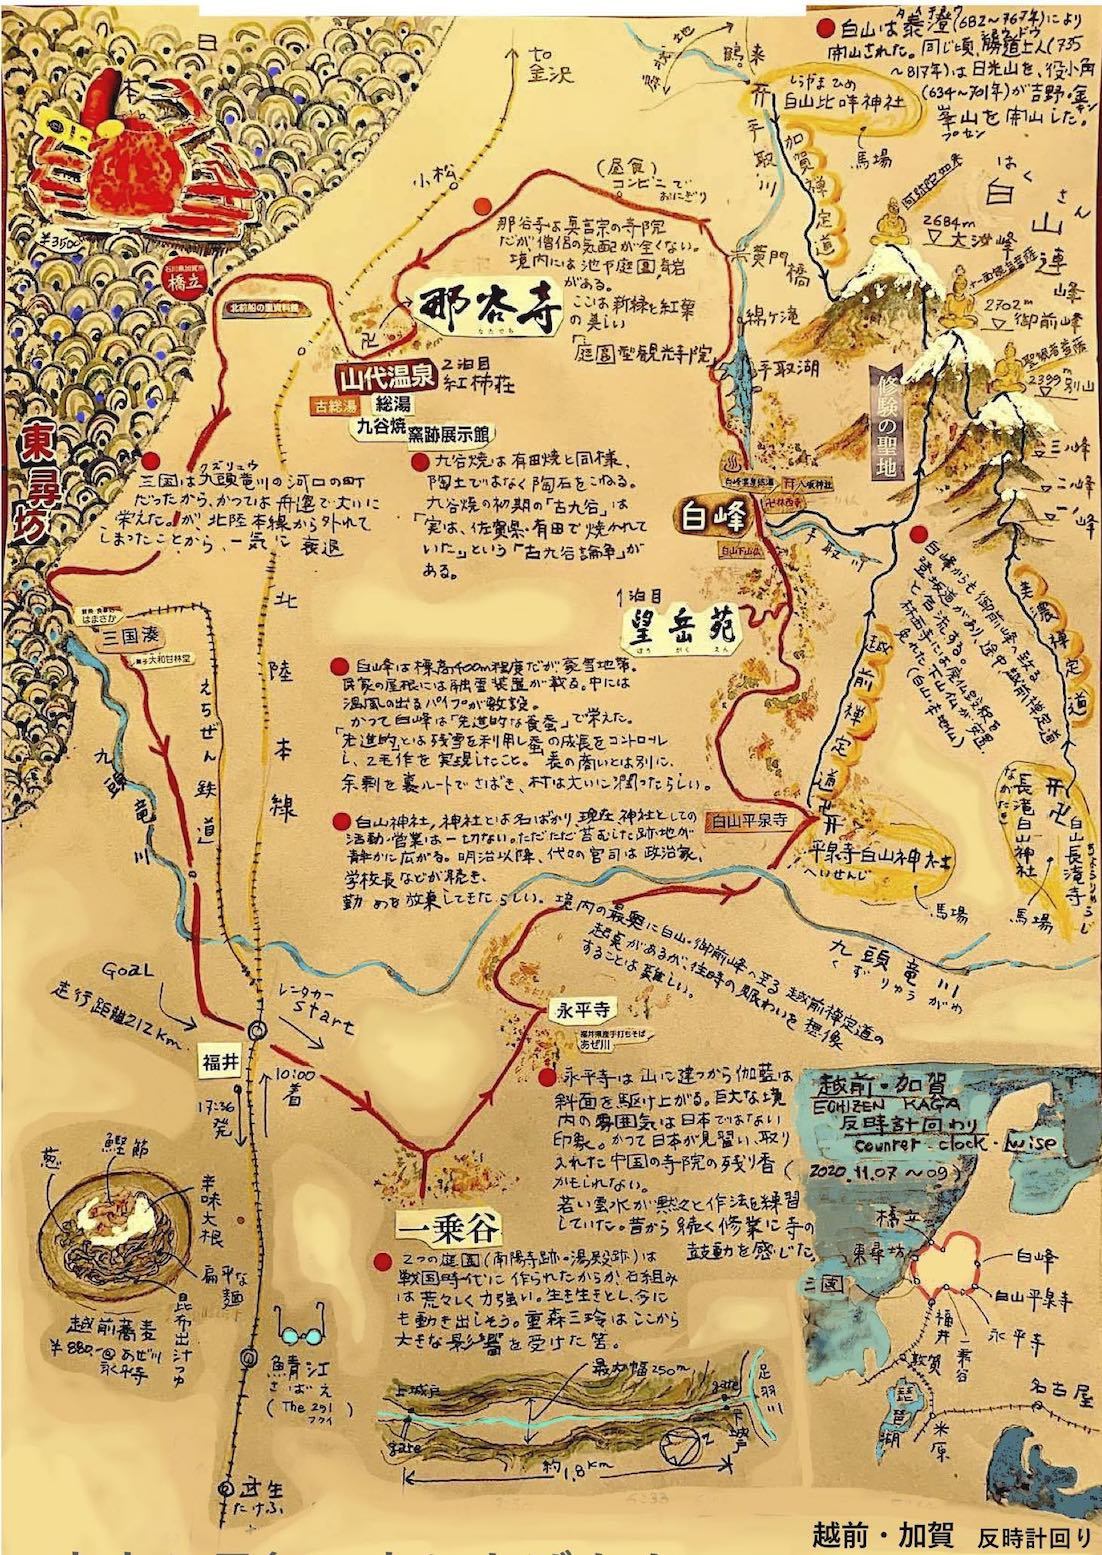 日
本
海
¥3500
石川県加賀市
橋立
北前船の里資料館
to
金沢
小松
(昼食)
コンビニで
おにぎり
那谷寺は真言宗の寺院
だが僧侶の気配が全くない。
境内には池や庭園、奇岩
がある。
ここは新緑と紅葉
の美しい
「庭園型観光寺院」
那谷寺
なたでら
山代温泉
2泊目
紅柿荘
古総湯
総湯
九谷焼
窯跡展示館
九谷焼は有田焼と同様、
陶土ではなく陶石をこねる。
九谷焼の初期の「古九谷」は
「実は、佐賀県・有田で焼かれて
いた」という「古九谷論争」が
ある。
白山は泰澄(682〜767年)により
開山された。同じ頃、勝道上人(735
〜817年)は日光山を、役小角
(634〜701年)が吉野・金
峯山を開山した。
鶴来
しらやまひめ
白山比咩神社
馬場
手取川
加賀禅定道
黄門橋
綿ヶ滝
手取湖
阿弥陀如来
はくさん
白山連峰
2684m
大汝峰
十一面観音菩薩
2702m
御前峰
聖観音菩薩
2399m
別山
三ノ峰
二ノ峰
一ノ峰
修験の聖地
東尋坊
クズリュウ
三国は九頭竜川の河口の町
だったから、かつては舟運で大いに
栄えた。が北陸本線から外れて
しまったことから、一気に衰退
はまさか
三国湊
大和甘林堂
えちぜん鉄道
北陸本線
九頭竜川
白峰
八坂神社
林西寺
手取川
1泊目
望岳苑
ぼうがくえん
白山峰は標高400m程度だが豪雪地帯。
民家の屋根には融雪装置が載る。中には
温風の出るパイプが敷設。
かつて白峰は「先進的な養蚕」で栄えた。
「先進的」とは残雪を利用し蚕の成長をコントロール
し、2毛作を実現したこと。表の商いとは別に、
余剰を裏ルートでさばき、村は大いに潤ったらしい。
白峰からも御前峰へ致る
登坂道があり、途中越前禅定道
と合流する。
林西寺には廃仏毀釈を
免れた「下山仏」が安置
(白山本地仏)
越前禅定道
美濃禅定道
長滝白山神社
白山長滝寺
馬場
白山神社、神社とは名ばかり、現在神社としての
活動・営業は一切ない。ただただ苔むした跡地が
静かに広がる。明治以降、代々の宮司は政治家、
学校長などが続き、
勤めを放棄してきたらしい。境内の最奥に白山・御前峰へ至る越前禅定道の
起点があるが、往時の賑わいを想像
することは難しい。
白山平泉寺
平泉寺白山神社
へいせんじ
馬場
九頭竜川
くずりゅうがわ
GOAL
走行距離212km
レンタカー
Start
福井
10:00
着
17:36
発
永平寺
福井県産手打ちそば
あぜ川
永平寺は山に建つから伽藍は
斜面を駆け上がる。巨大な境
内の雰囲気は日本ではない
印象。かつて日本が見習い、取り
入れた中国の寺院の残り香(
かもしれない。
若い雲水が黙々と作法を練習
していた。昔から続く修業に寺の
鼓動を感じた。
一乗谷
2つの庭園(南陽寺跡・湯殿跡)は
戦国時代に作られたからか、石組み
は荒々しく力強い。生き生きとし、今に
も動き出しそう。重森三玲はここから
大きな影響を受けた筈。
葱
鰹節
辛味大根
扁平な麺
昆布出汁つゆ
越前蕎麦
¥880.-@あぜ川
永平寺
鯖江
さばえ
(The 291)
フクイ
武生
たけふ
上城戸
gate
最大幅250m
gate
下城戸
足羽川
約1.8km
Z
越前・加賀
ECHIZEN KAGA
反時計回り
counter-clock-wise
2020.11.07〜09)
橋立
東尋坊
三国
白峰
白山平泉寺
永平寺
一乗谷
福井
敦賀
琵琶湖
米原
名古屋
越前・加賀 反時計回り